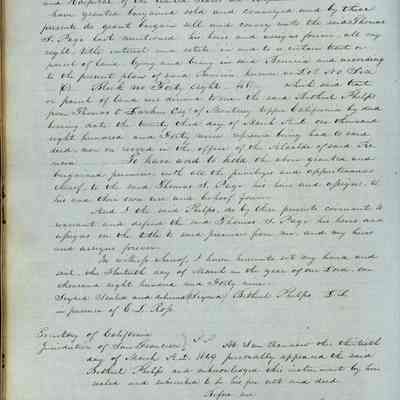 have granted bargained sold and conveyed and by these
presents do grant bargain sell and convey unto the said Thomas
S. Page last mentioned his heirs and assigns forever, all my
right, title interest and estate in and to a certain tract or
parcel of land lying and being in said Benicia and according
to the present plan of said Benicia known as Lot No
Block no Forty eight 48, which said tract
or parcel of land was deeded to me the said Bethuel Phelps
from Thomas O Larkin Esq of Monterey Upper California by deed
bearing date the third day of March A.D. one thousand
eight hundred and Forty nine reference being had to said
deed, now on record in the office of the Alcalde of said
To have and to hold the above granted and
bargained premises, with all the privileges and appurtenances
thereof, to the said Thomas S. Page his heirs and assigns, to
his and their own use and behoof forever.
And I the said Phelps, do by these presents covenant to
warrant and defend the said Thomas S. Page his heirs and
assigns in the title to said premises from me, and my heirs
and assigns forever.
In witness whereof, I have hereunto set my hand and
seal, the thirtieth day of March in the year of our Lord, one
thousand eight hundred and Forty nine.
Signed Sealed and delivered (Signed) Bethuel Phelps L.S.
in presence of E. L. Ross
Territory of California
Jurisdiction of San Francisco } S.S. At San Francisco this thirtieth
day of March A.D. 1849 personally appeared the said
Bethuel Phelps and acknowledged this instrument by him
sealed and subscribed to be his free act and deed.
Before me